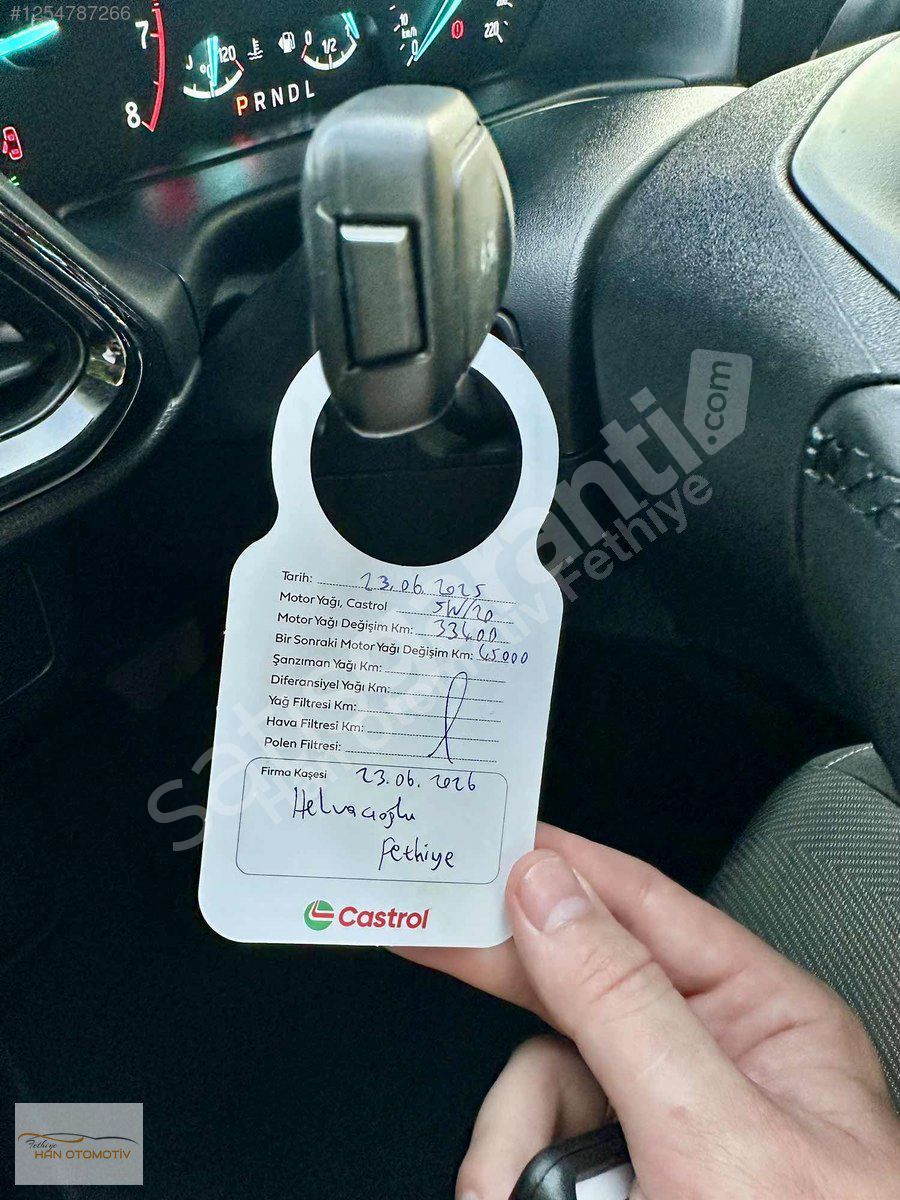 #1254787266
7
8
120
0
1/2
10
km/h
0
220
P R N D L
Satgaranti.com
Han Otomotiv Fethiye
Tarih: 23.06.2025
Motor Yağı, Castrol 5W/20
Motor Yağı Değişim Km: 33400
Bir Sonraki Motor Yağı Değişim Km: 45000
Şanzıman Yağı Km:
Diferansiyel Yağı Km:
Yağ Filtresi Km:
Hava Filtresi Km:
Polen Filtresi:
Firma Kaşesi 23.06.2026
Helvacıoğlu
Fethiye
Castrol
Fethiye
HAN OTOMOTİV